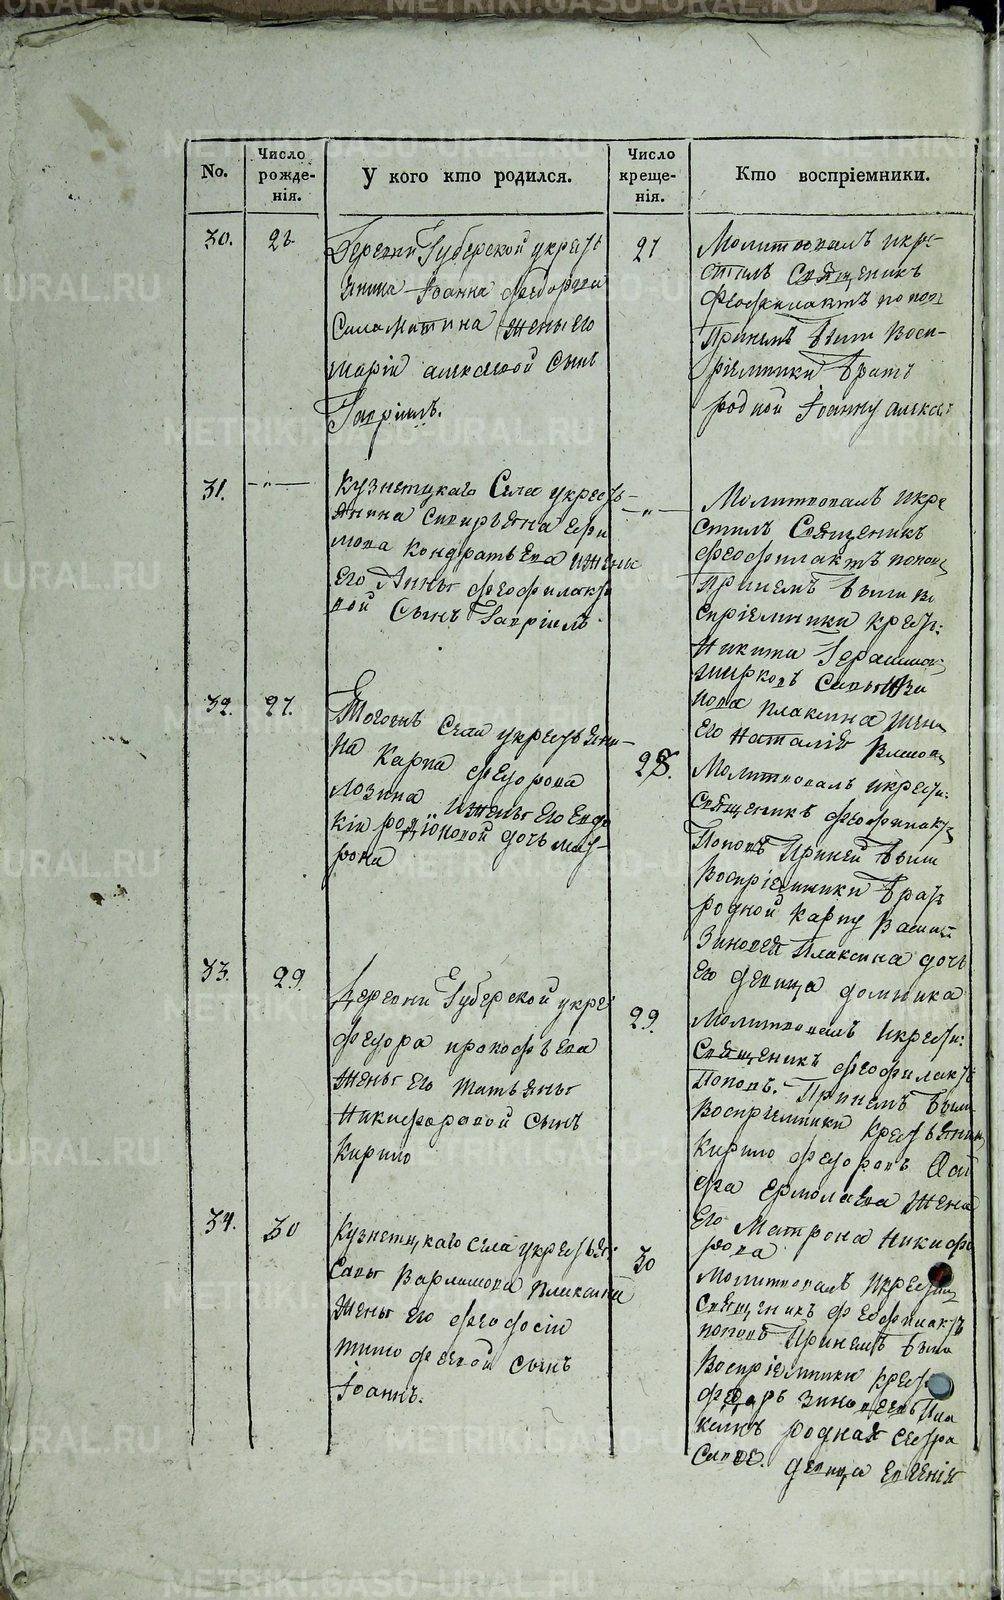 No.
Число рожде-нія.
У кого кто родился.
Число креще-нія.
Кто воспріемники.
30.
Деревни Губерской укресть
янина Іоанна Федорова
Саламатина жены его
Маріи Сынъ
Гавріилъ.
27
Молитвовалъ икре-
стилъ Священикъ
Феофилактъ попов
Принемъ были Воси-
ріемники братъ
родной Іоанну
31.
—"—
Кузнетцкаго Села укресть-
янина
Кондратьева ижены
его Анны Феофилакто
вой Сынъ Гавріилъ
—"—
Молитвовалъ икре
стилъ Священикъ
Феофилактъ попов
принемъ были во
спріемники крест:
Никита Герасимов
Плаксина жена
его Наталія
32.
27.
Тогожъ Села укрестьяни-
на Карпа Федорова
Лозина ижены его Евдо
кіи родіоновой дочь мат-
рона
28.
Молитвовалъ икрести:
Священикъ Феофилакт
Поповъ Приней были
Воспріемники братъ
родной Карпу
Зиновея Плаксина дочь
его девица домника
33.
29.
Деревни Губерской укре
Федора прокофьева
жены его татьяны
Никифоровой сынъ
Кирило
29.
Молитвовалъ икрести:
Священикъ Феофилактъ
Поповъ. Принемъ были
Воспріемники крестьянин
Кирило Федоровъ
Ермолаева жена
его Матрона Никифо
рова
34.
30
Кузнетцкаго села укрестьян:
Савы Варламова Плаксина
жены его Феодосіи
тимофеевой сынъ
Іоаннъ.
30
Молитвовалъ икрестил
Священикъ Феофилактъ
поповъ Принемъ были
Воспріемники крест
Федоръ Зиновеевъ Пла
ксинъ родная сестра
девица Евгенія